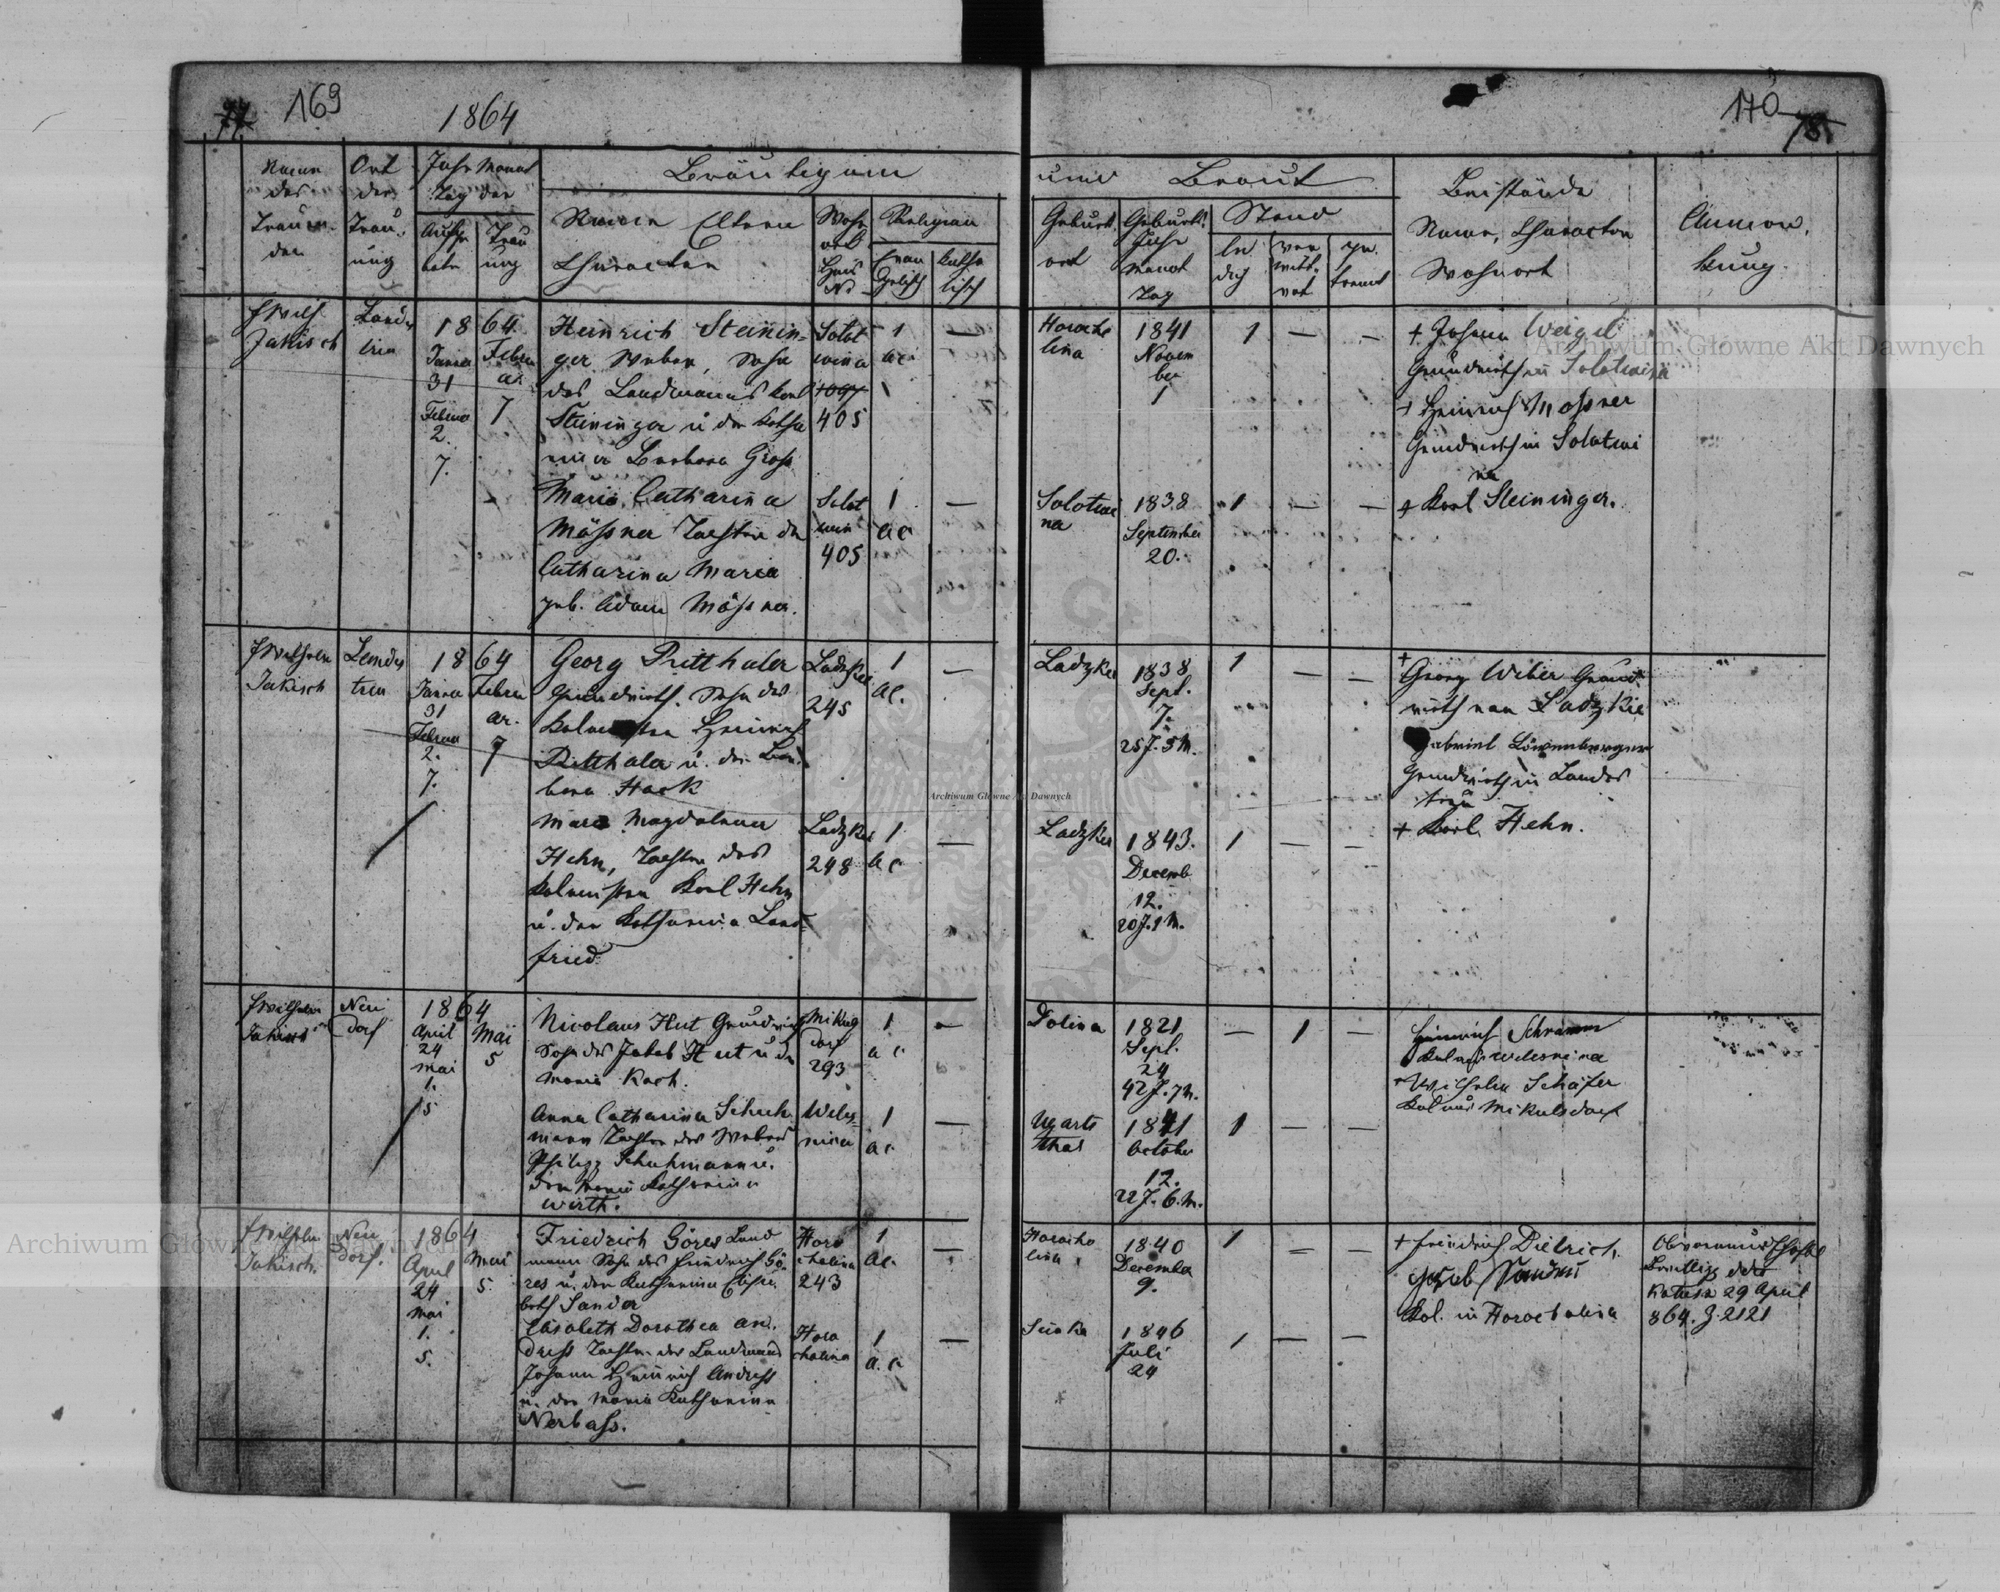 77 169
1864
170 78.
Name
des
Trauen-
den
Ort
der
Trau-
ung
Jahr Monat
Tag der
Aufge
bote
Trau
ung
Bräutigam
und Braut
Namen Eltern
Character
Wohn
ort
Haus
No
Religion
Evan
gelisch
Katho
lisch
Geburts
ort
Geburts
Jahr
Monat
Tag
Stand
le
dig
ver
witt-
wet
ge-
trennt
Beistände
Name, Character
Wohnort
Anmer-
kung.
Jakisch
Landes
treu
1864
Janua
31
Februa
2.
7.
Febru
ar.
7
Heinrich Steinin-
ger Weber, Sohn
des Landmanns Karl
Steininger u der Katha
rina Barbara Groß
Solot
wina
1097
405
1
ac.
—
Horocho
lina
1841
Novem
ber
1
1 — —
+ Johann Weigel
Grundwirth in Solotwina
+ Heinrich Mößner
Grundwirth in Solotwi
na
+ Karl Steininger.
Maria Catharina
Mößner Tochter der
Catharina Maria
geb. Adam Mößner.
Solot
wina
405
1
ac
—
Solotwi
na
1838
September
20.
1 — —
Wilhelm
Jakisch
Landes
treu
1864
Janua
31
Februa
2.
7.
Febru
ar.
7
Georg Pritthaler
Grundwirth. Sohn des
Kolonisten Heinrich
Pritthaler u. der Bar
bara Hack
Ladzkie
245
1
ac.
—
Ladzkie
1838
Sept.
7.
25 J. 5 M.
1 — —
+
Georg Weber Grund
wirth von Ladzkie
Gabriel Löwenberger
Grundwirth in Landes
treu
+ Karl Hehn.
Maria Magdalena
Hehn, Tochter des
Kolonisten Karl Hehn
u. der Katharina Land-
fried.
Ladzkie
248
1
ac
—
Ladzkie
1843.
Decemb
12.
20 J. 1 M.
1 — —
Wilhelm
Jakisch
Neu
dorf
1864
April
24
Mai
1.
5
Mai
5
Nicolaus Hut Grundwirth
Sohn des Jakob Hut u der
Maria Koch.
Mikuls
dorf
293
1
a c.
—
Dolina
1821
Sept.
24
42 J. 7 M.
— 1 —
Heinrich Schramm
Wilhelm Schäfer
Mikulsdorf
Anna Catharina Schuh
mann Tochter des Webers
Philipp Schuhmann u.
der Maria Katharina
Wirth.
Weles-
nina
1
a c.
—
Ugarts
thal
1841
October
12.
22 J. 6. M.
1 — —
Wilhelm
Jakisch.
Neu
dorf.
1864
April
24
Mai
1.
5.
Mai
5.
Friedrich Göres Land
mann Sohn des Friedrich Gö
res u. der Katharina Elisa
beth Sander
Horo
cholina
243
1
ac.
—
Horocho
lina
1840
December
9.
1 — —
+ Friedrich Dietrich.
Kol. in Horocholina
29 April
864. Z. 2121
Elisabeth Dorothea An-
dreß Tochter des Landmanns
Johann Heinrich Andreß
u. der Maria Katharina
Nerbaß.
Horo
cholina
1
a. c.
—
1846
Juli
24
1 — —
Archiwum Główne Akt Dawnych
Archiwum Główne Akt Dawnych
Archiwum Główne Akt Dawnych